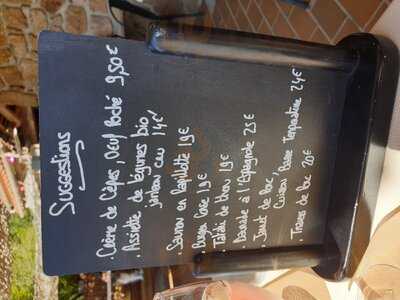 Suggestions
. Crème de Cèpes, Oeuf Poché 9,50€
. Assiette de légumes bio,
jambon cru 14€
. Saumon en Papillotte 19€
. Burger Corse 19€
. Tataki de thon 19€
. Daurade à l'Espagnole 25€
. Jarret de Porc,
Cuisson Basse Température 24€
. Travers de Porc 20€